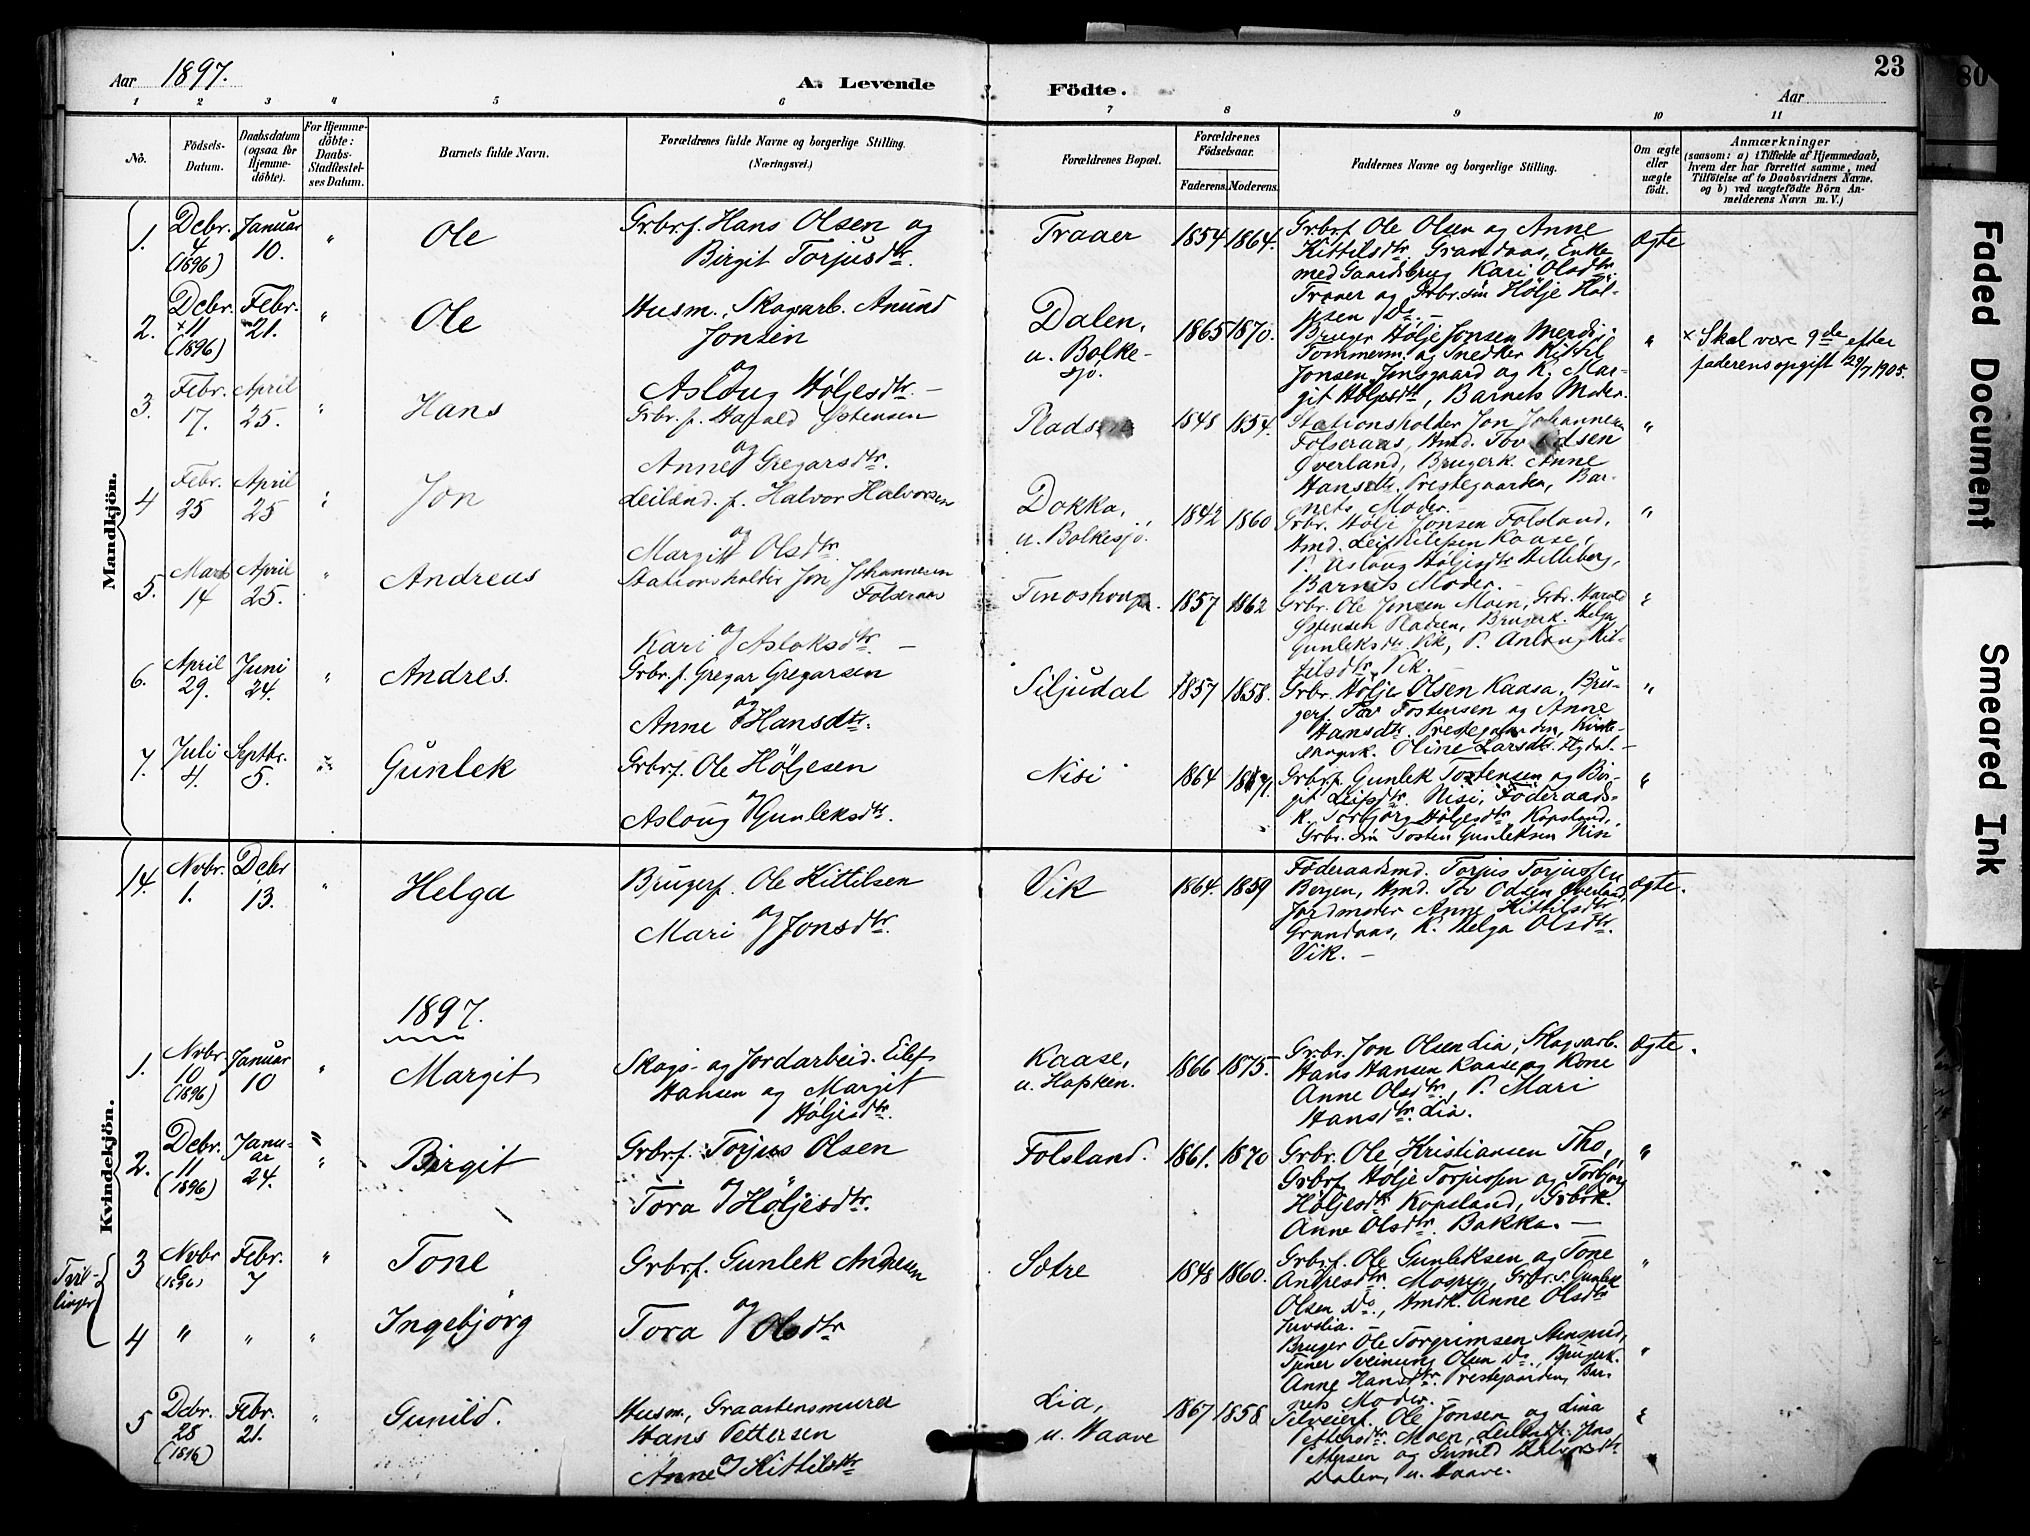 Aar 1897.
A. Levende Födte.
23
Aar
80
1 2 3 4 5 6 7 8 9 10 11
No.
Födsels-
Datum.
Daabsdatum
(ogsaa for
Hjemme-
döbte).
For Hjemme-
döbte:
Daabs-
Stadfæstel-
ses Datum.
Barnets fulde Navn.
Forældrenes fulde Navne og borgerlige Stilling.
(Næringsvei.)
Forældrenes Bopæl.
Forældrenes
Födselsaar.
Faderens. Moderens.
Faddernes Navne og borgerlige Stilling.
Om ægte
eller
uægte
födt.
Anmærkninger
(saasom: a) i Tilfælde af Hjemmedaab,
hvem der har forrettet samme, med
Tilföielse af to Daabsvidners Navne.
og b) ved uægtefödte Börn An-
melderens Navn m. V.)
Mandkjön.
1. Debr. 4 (1896) Januar 10. " Ole
Grbrf. Hans Olsen og
Birgit Torjusdtr.
Traaer 1854 1864.
Grbrf. Ole Olsen og Anne
Kittilsdtr. Grandaas, Enke
med Gaardsbrug Kari Olsdtr.
Traaer og Grbr. sön Hølje Høl-
jesen Do. –
ægte
2. Debr. x11 (1896) Febr. 21. " Ole
Husm., Skogarb. Anund
Jonsen
og
Aslaug Høljesdtr. –
Dalen,
u. Bolke-
sjö.
1865 1870.
Bruger Hølje Jonsen Merdi,
Tømmerm. og Snedker Kittil
Jonsen, Jonsgaard og K. Mar-
git Høljesdtr, Barnets Moder.
"
x Skal være 9de efter
faderens opgift 29/7 1905.
3. Febr. 17. April 25. " Hans
Grbr. f. Harald Østensen
og
Anne Gregarsdtr.
Pladsen 1848 1854.
Stationsholder Jon Johannesen
Folseraas, Hmd. Tov Odsen
Øverland, Brugerk. Anne
Hansdtr. Prestegaarden, Bar-
nets Moder. –
"
4 Febr. 25 April 25 " Jon
Leilænd. f. Halvor Halvorsen
og
Margit Olsdtr.
Dokka,
u. Bolkesjö.
1842 1860
Grbr. Hølje Jonsen Folsland,
Hmd. Leif Nilssen Kaase,
P. Aslaug Høljesdtr Hilleberg,
Barnets Moder. –
"
5. Marts 14 April 25. " Andreas
Stationsholder Jon Johannesen
Folseraas
og
Kari Aslaksdtr. –
Tinoshougn. 1857 1862
Grbr. Ole Jonsen Moen, Grbr. Harald
Østensen Pladsen, Brugerk. Helga
Gunleksdtr Vik, P. Aslaug Kit-
tilsdtr. Vik. –
"
6. April 29. Juni 24. " Andres.
Grbr. f. Gregar Gregarsen
og
Anne Hansdtr.
Siljudal 1857 1858.
Grbr. Hølje Olsen Kaasa, Bru-
gerf. Tov Tostensen og Anne
Hansdtr. Prestegaarden, Kirke-
Oline Larsdtr. Flydal. –
"
7. Juli 4. Septbr. 5. " Gunlek
Grbrf. Ole Høljesen
og
Aslaug Gunleksdtr.
Nisi 1864 1871.
Grbrf. Gunlek Tostensen og Bir-
git Leifsdtr. Nisi, Föderaads-
k. Torbjörg Høljesdtr. Kopsland,
Grbr. sön Tosten Gunleksen Nisi
"
Kvindekjön.
14. Nvbr. 1. Debr 13. " Helga
Brugerf. Ole Kittilsen
og
Mari Jonsdtr.
Vik 1864. 1859
Föderaadsmd. Torjus Torjussen
Bergen, Hmd. Tov Odsen Øverland,
Jordmoder Anne Kittilsdtr
Grandaas, K. Helga Olsdtr.
Vik. –
ægte.
1897.
1. Nvbr. 10 (1896) Januar 10 " Margit
Skogs- og Jordarbeid. Eilef
Hansen og Margit
Høljesdtr.
Kaase,
u. Hapteen.
1866 1875.
Grbr. Jon Olsen Lia, Skogsarb.
Hans Hansen Kaase og Kone
Anne Olsdtr, P. Mari
Hansdtr. Lia.
ægte.
2. Debr. 11 (1896) Janu-
ar 24. " Birgit
Grbrf. Torjus Olsen
og
Tora Høljesdtr.
Folsland. 1861. 1870
Grbr. Ole Kristiansen Tho,
Grbrf. Hølje Torjussen og Torbjörg
Høljesdtr Kopsland, Grbrk.
Anne Olsdtr. Bakka. –
"
Tvil-
linger
3 Nvbr (1896) Febr. 7 " Tone
Grbr. f. Gunlek Andresen
og
Tora Olsdtr
Sætre 1848 1860.
Grbrf. Ole Gunleksen og Tone
Andresdtr. Mogrey, Grbr. s. Gunlek
Olsen Do., Hmdk. Anne Olsdtr
Juvslia. –
"
4 " " " Ingebjörg
Bruger Ole Torgrimsen Stensrud,
Tjener Sveinung Olsen Do., Brugerk.
Anne Hansdtr. Prestegaarden, Bar-
nets Moder.
"
5 Debr. 28 (1896) Febr. 21. " Gunild.
Husm., Graastensmurer
Hans Pettersen
og
Anne Kittilsdtr
Lia,
u. Haave
1867 1858
Selveierf. Ole Jonsen og Lina
Pettersdtr. Moen, Leilændf. Jens
Pettersen og Gunild Halvorsdtr.
Dalen, u. Haave.
"
Faded Document
Smeared Ink